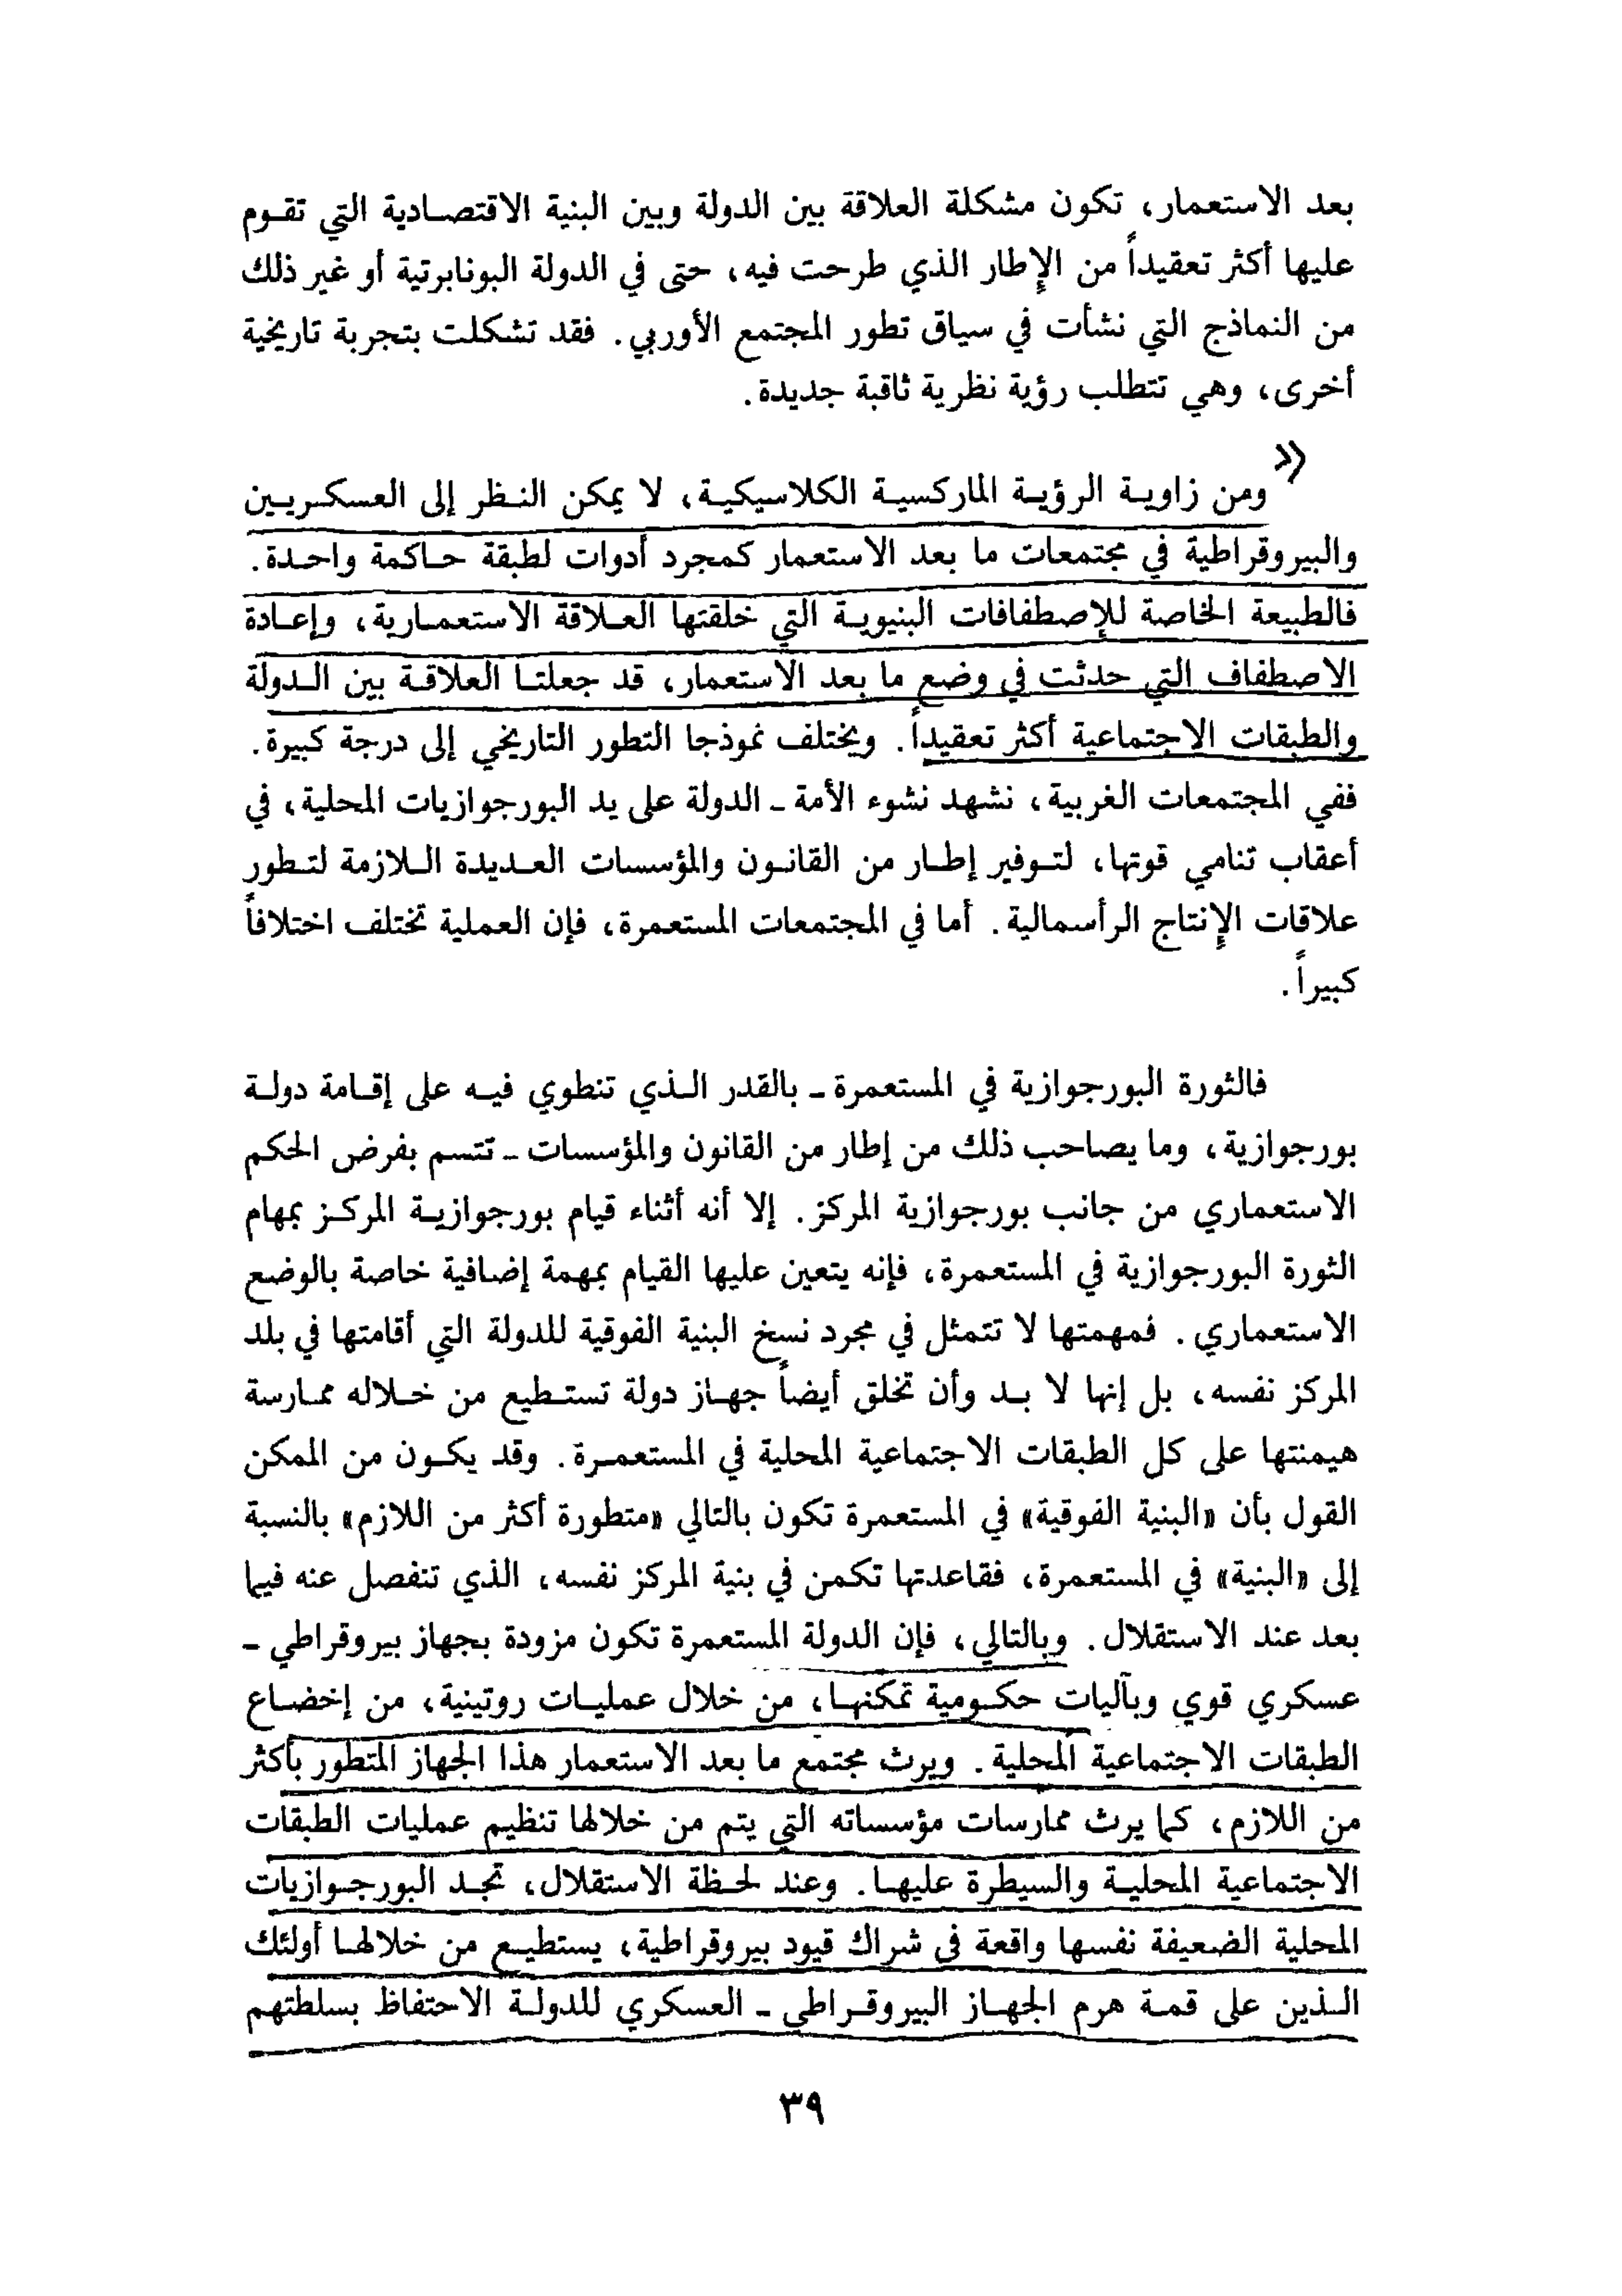 بعد الاستعمار، تكون مشكلة العلاقة بين الدولة وبين البنية الاقتصادية التي تقوم
عليها أكثر تعقيداً من الإطار الذي طرحت فيه، حتى في الدولة البونابرتية أو غير ذلك
من النماذج التي نشأت في سياق تطور المجتمع الأوربي. فقد تشكلت بتجربة تاريخية
أخرى، وهي تتطلب رؤية نظرية ثاقبة جديدة.
«
ومن زاوية الرؤية الماركسية الكلاسيكية، لا يمكن النظر إلى العسكريين
والبيروقراطية في مجتمعات ما بعد الاستعمار كمجرد أدوات لطبقة حاكمة واحدة.
فالطبيعة الخاصة للإصطفافات البنيوية التي خلقتها العلاقة الاستعمارية، وإعادة
الاصطفاف التي حدثت في وضع ما بعد الاستعمار، قد جعلتا العلاقة بين الدولة
والطبقات الاجتماعية أكثر تعقيداً. ويختلف نموذجا التطور التاريخي إلى درجة كبيرة.
ففي المجتمعات الغربية، نشهد نشوء الأمة - الدولة على يد البورجوازيات المحلية، في
أعقاب تنامي قوتها، لتوفير إطار من القانون والمؤسسات العديدة اللازمة لتطور
علاقات الإنتاج الرأسمالية. أما في المجتمعات المستعمرة، فإن العملية تختلف اختلافاً
كبيراً.
فالثورة البورجوازية في المستعمرة - بالقدر الذي تنطوي فيه على إقامة دولة
بورجوازية، وما يصاحب ذلك من إطار من القانون والمؤسسات - تتسم بفرض الحكم
الاستعماري من جانب بورجوازية المركز. إلا أنه أثناء قيام بورجوازية المركز بمهام
الثورة البورجوازية في المستعمرة، فإنه يتعين عليها القيام بمهمة إضافية خاصة بالوضع
الاستعماري. فمهمتها لا تتمثل في مجرد نسخ البنية الفوقية للدولة التي أقامتها في بلد
المركز نفسه، بل إنها لا بد وأن تخلق أيضاً جهاز دولة تستطيع من خلاله ممارسة
هيمنتها على كل الطبقات الاجتماعية المحلية في المستعمرة. وقد يكون من الممكن
القول بأن «البنية الفوقية» في المستعمرة تكون بالتالي «متطورة أكثر من اللازم» بالنسبة
إلى «البنية» في المستعمرة، فقاعدتها تكمن في بنية المركز نفسه، الذي تنفصل عنه فيما
بعد عند الاستقلال. وبالتالي، فإن الدولة المستعمرة تكون مزودة بجهاز بيروقراطي -
عسكري قوي وبآليات حكومية تمكنها، من خلال عمليات روتينية، من إخضاع
الطبقات الاجتماعية المحلية. ويرث مجتمع ما بعد الاستعمار هذا الجهاز المتطور بأكثر
من اللازم، كما يرث ممارسات مؤسساته التي يتم من خلالها تنظيم عمليات الطبقات
الاجتماعية المحلية والسيطرة عليها. وعند لحظة الاستقلال، تجد البورجوازيات
المحلية الضعيفة نفسها واقعة في شراك قيود بيروقراطية، يستطيع من خلالها أولئك
الذين على قمة هرم الجهاز البيروقراطي - العسكري للدولة الاحتفاظ بسلطتهم
٣٩